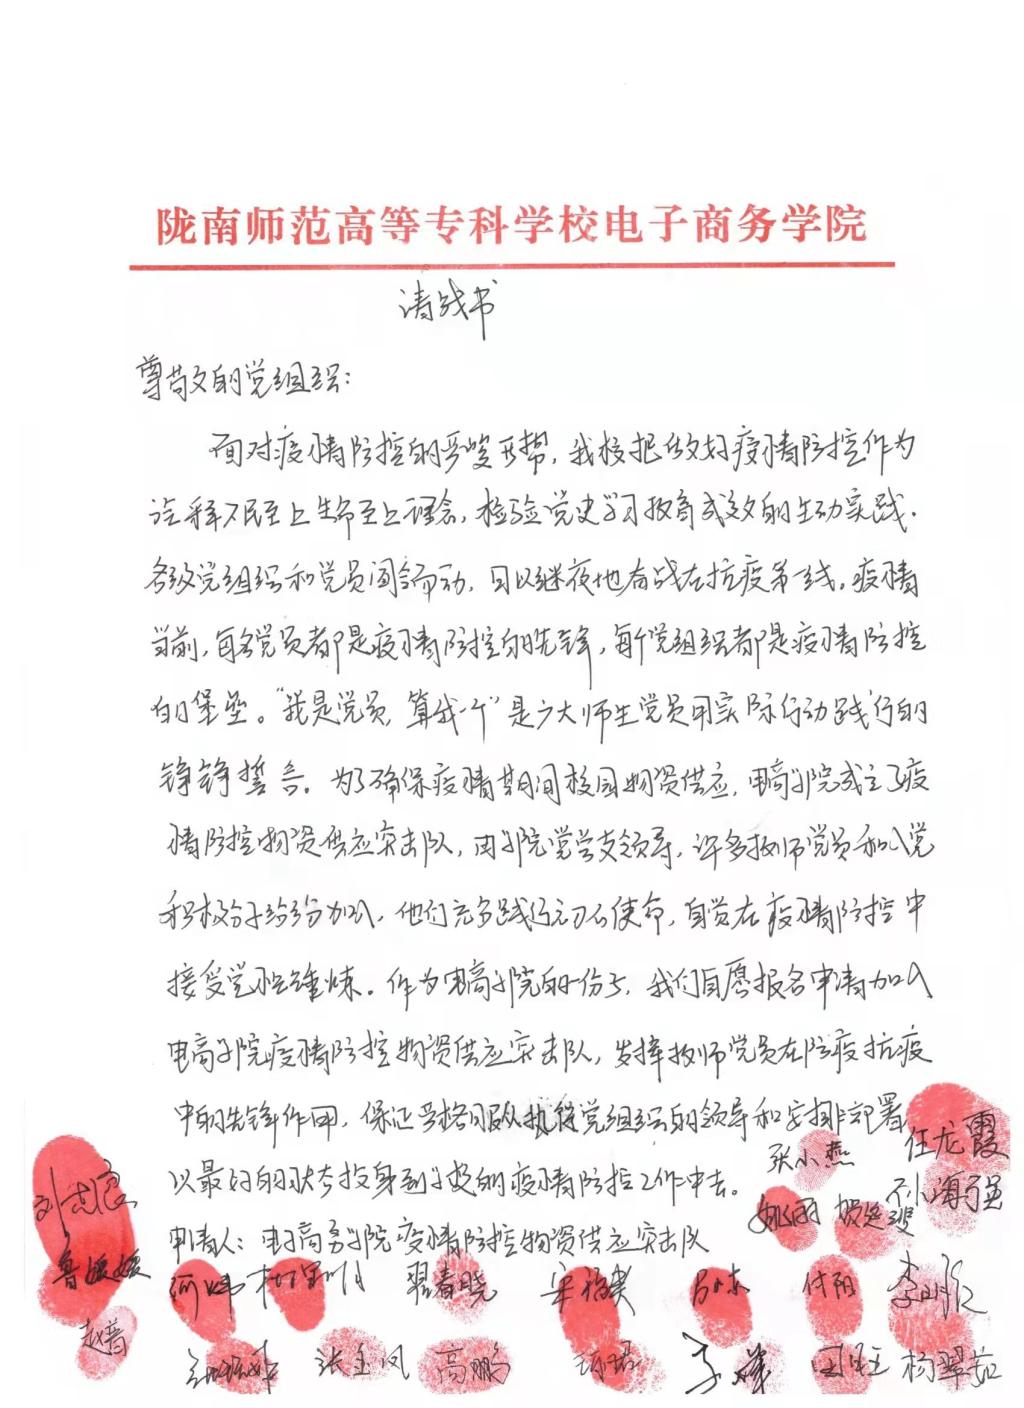 陇南师范高等专科学校电子商务学院
请战书
尊敬的党组织：
面对疫情防控的严峻形势，我校把做好疫情防控作为
诠释人民至上生命至上理念，检验党史学习教育成效的生动实践．
各级党组织和党员闻令而动，日以继夜地奋战在抗疫第一线。疫情
当前，每名党员都是疫情防控的先锋，每个党组织都是疫情防控
的堡垒。“我是党员，算我一个”是广大师生党员用实际行动践行的
铮铮誓言。为了确保疫情期间校园物资供应，电商学院成立了疫
情防控物资供应突击队，由学院党总支领导，许多教师党员和入党
积极分子纷纷加入，他们充分践行初心使命，自觉在疫情防控中
接受党性锤炼。作为电商学院的一份子，我们自愿报名申请加入
电商学院疫情防控物资供应突击队，发挥教师党员在防疫抗疫
中的先锋作用，保证严格服从执行党组织的领导和安排部署，
以最好的状态投身到学校的疫情防控工作中去。
申请人：电子商务学院疫情防控物资供应突击队
张小燕 任龙霞
刘志良 姚丽 孙海强
鲁媛媛 翟春晓 付阳
赵普 张金凤 高鹏 杨翠茹